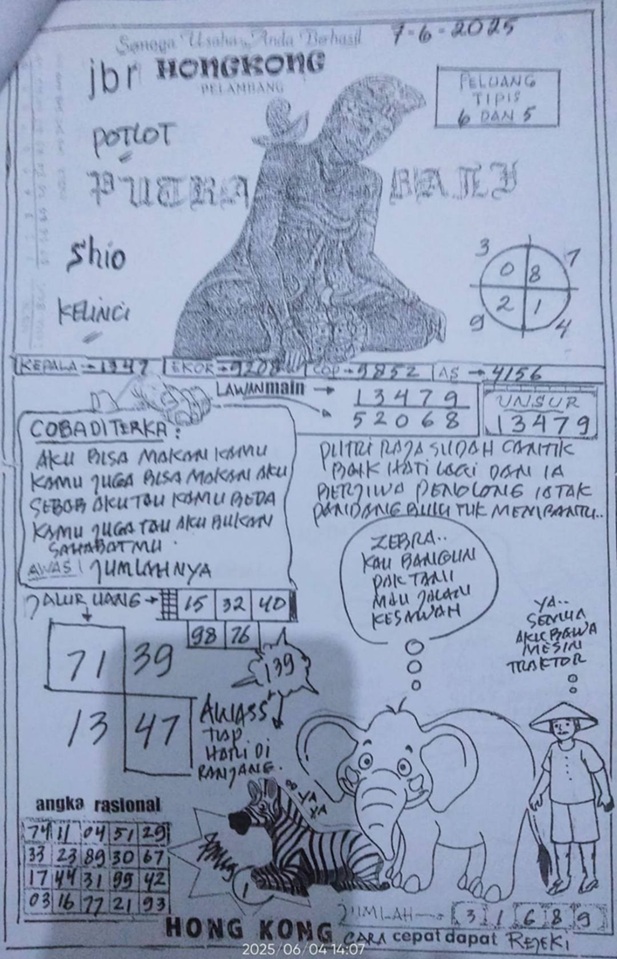 Semoga Usaha Anda Berhasil
7-6-2025
jbr HONGKONG
PELAMBANG
PELUANG
TIPIS
6 DAN 5
POTLOT
PUTRA BALI
Shio
KELINCI
3 7
0 8
2 1
9 4
KEPALA → 1347 EKOR → 9208 COP → 9852 AS → 4156
LAWAN main → 13479
52068
UNSUR
13479
COBA DITERKA :
AKU BISA MAKAN KAMU
KAMU JUGA BISA MAKAN AKU
SEBAB AKU TAU KAMU BEDA
KAMU JUGA TAU AKU BUKAN
SAHABATMU.
AWAS! JUMLAHNYA
PUTRI RAJA SUDAH CANTIK
BAIK HATI LAGI DAN IA
BERJIWA PENOLONG IA TAK
PANDANG BULU TUK MEMBANTU..
JALUR UANG → 15 32 40
98 76
71 39
13 47
139
AWASS
TIAP
HARI DI
RANJANG.
ZEBRA..
KAU BANGUN
PAK TANI
MAU JALAN
KESAWAH
YA..
SEMUA
AKU BAWA
MESIN
TRAKTOR
YA
YA
angka rasional
74 11 04 51 29
33 23 89 30 67
17 44 31 95 42
03 16 77 21 93
1
JUMLAH → 3 1 6 8 9
HONG KONG CARA cepat dapat REJEKI
2025/06/04 14:07